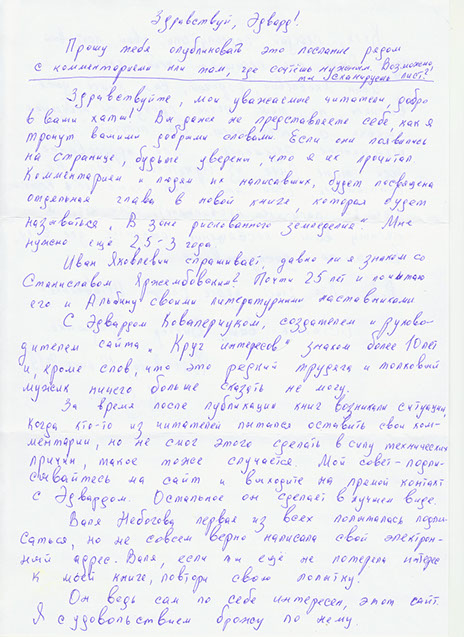 Здравствуй, Эдвард!
Прошу тебя опубликовать это послание рядом
с комментариями или там, где сочтёшь нужным. Возможно,
ты сканируешь лист?!
Здравствуйте, мои уважаемые читатели, добро
в ваши хаты! Вы даже не представляете себе, как я
тронут вашими добрыми словами. Если они появились
на странице, будьте уверены, что я их прочитал
Комментариям и людям их написавших, будет посвящена
отдельная глава в новой книге, которая будет
называться „В зоне рискованного земледелия" Мне
нужно ещё 2,5-3 года
Иван Яковлевич спрашивает, давно ли я знаком со
Станиславом Яржембовским? Почти 25 лет и почитаю
его и Альбину своими литературными наставниками
С Эдвардом Ковалерчуком, создателем и руково-
дителем сайта „Круг интересов" знаком более 10 лет
и, кроме слов, что это редкий трудяга и толковый
мужик ничего больше сказать не могу.
За время после публикации книг возникали ситуации,
когда кто-то из читателей пытался оставить свои ком-
ментарии, но не смог этого сделать в силу технических
причин, такое тоже случается. Мой совет - подпи-
сывайтесь на сайт и выходите на прямой контакт
с Эдвардом. Остальное он сделает в лучшем виде.
Валя Небогова первая из всех попыталась подпи-
саться, но не совсем верно написала свой электрон-
ный адрес. Валя, если ты ещё не потеряла интерес
к моей книге, повтори свою попытку.
Он ведь сам по себе интересен, этот сайт.
Я с удовольствием брожу по нему.